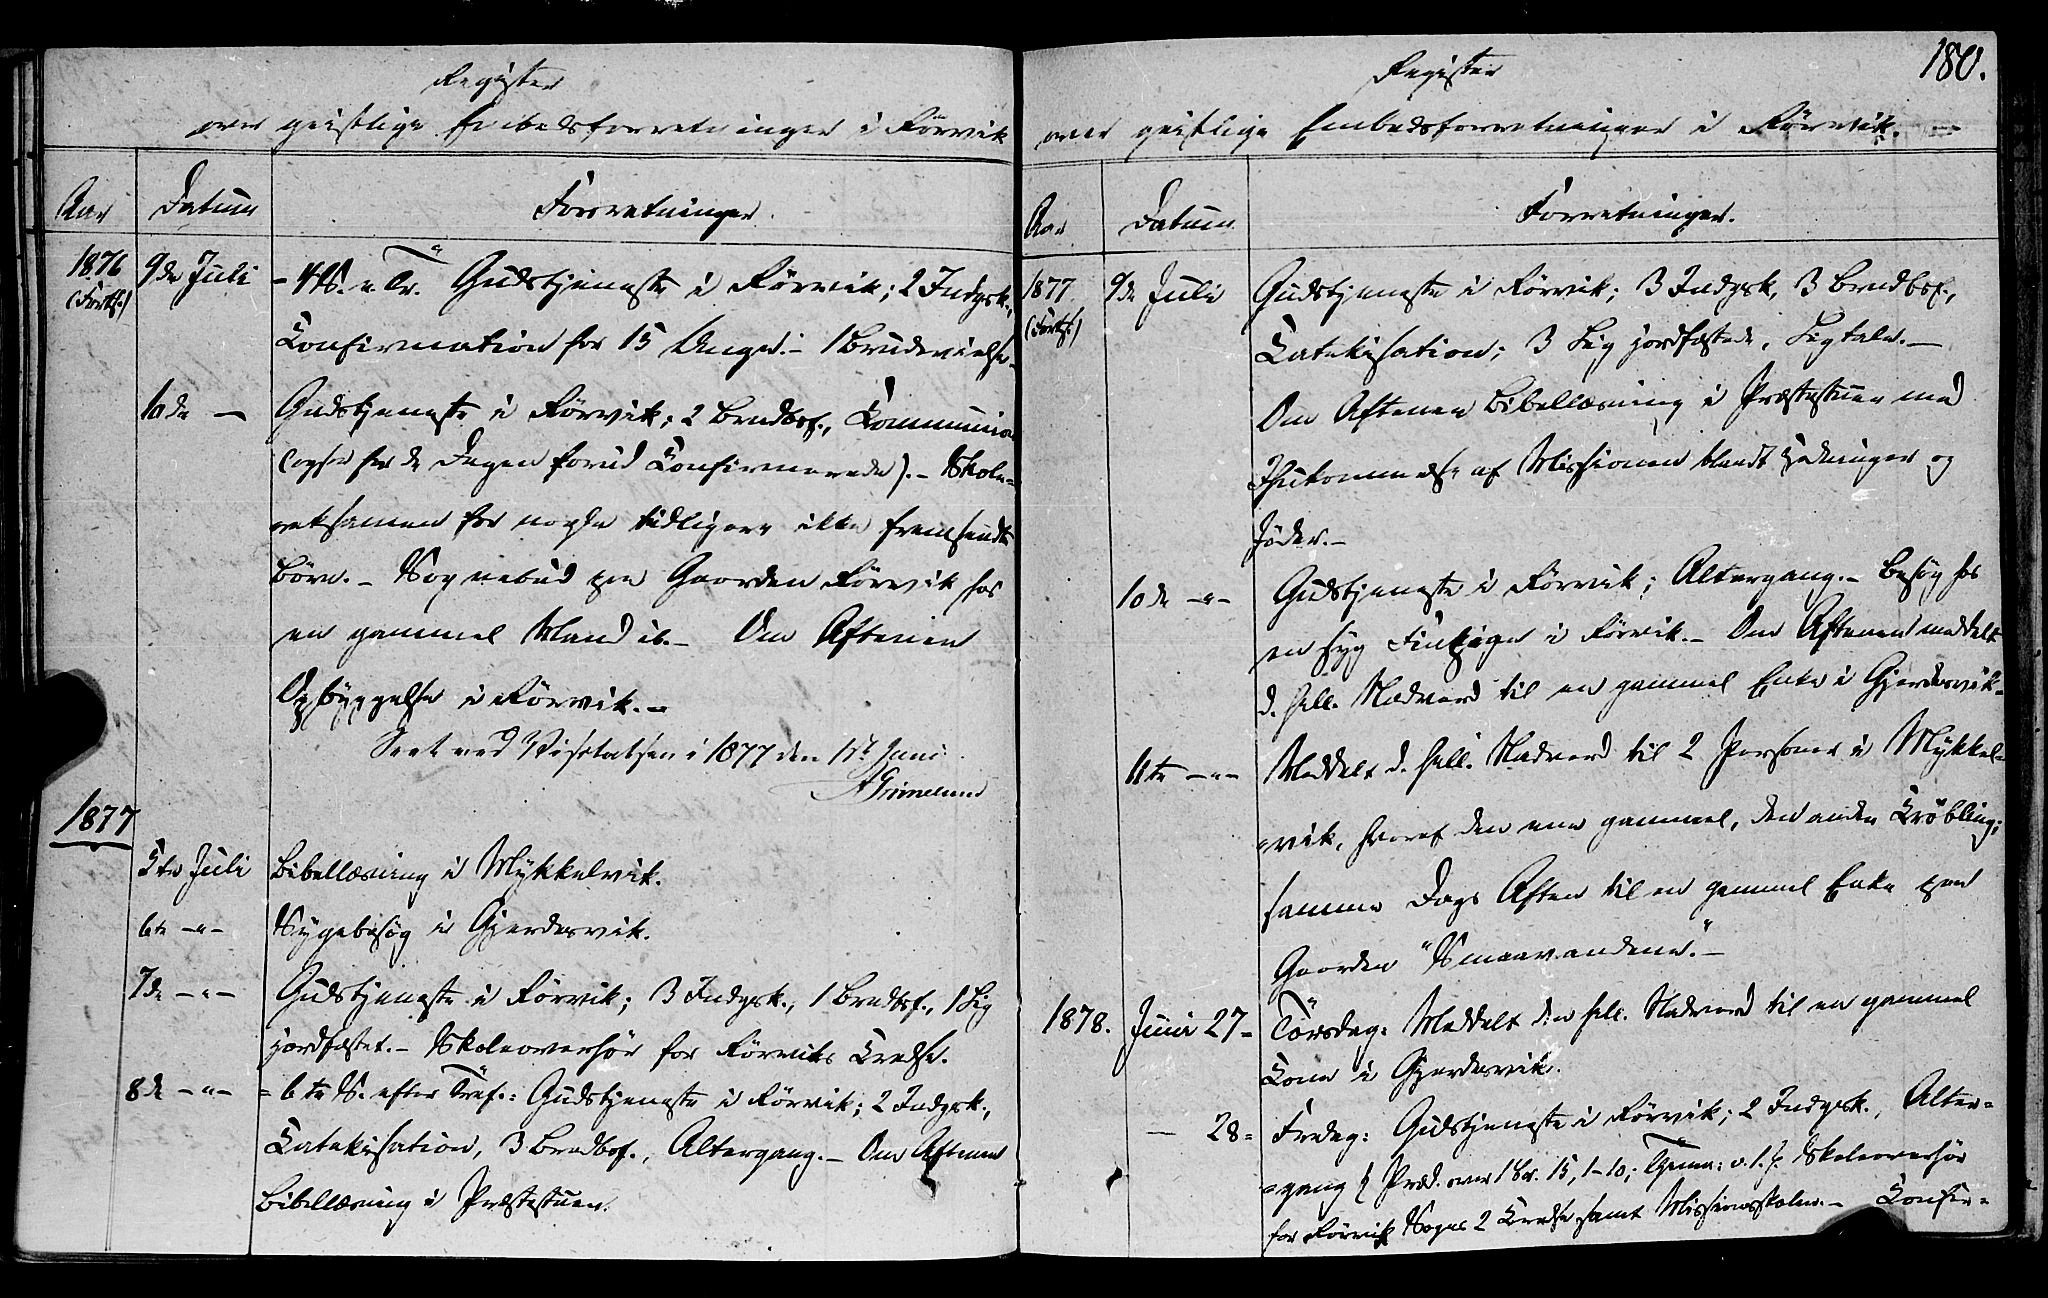 Register
over geistlige Embedsforretninger i Rörvik
Aar Datum Forretninger.
1876 9de Juli - 4 S. e. Tr. Gudstjeneste i Rörvik; 2 Indgsk.,
(Forts.) Confirmation for 15 Unge. - 1 Brudevielse.
10de — Gudstjeneste i Rörvik; 2 Brudbsf., Communion
(ogsaa for de Dagen forud Confirmerede). - Skole-
eksamen for nogle tidligere ikke fremsendte
Börn. - Sognebud paa Gaarden Rörvik hos
en gammel Mand ib. - Om Aftenen
Opbyggelse i Rörvik. -
Seet ved Visitatsen i 1877 den 1ste Juni
AGrimelund
1877
5te Juli Bibellæsning i Mykkelvik.
6te -"- Sygebesög i Gjerdesvik.
7de -"- Gudstjeneste i Rörvik; 3 Indgsk., 1 Brudbsf., 1 Lig
jordfæstet. - Skoleoverhör for Rörviks Creds.
8de -"- = 6te S. efter Tref.: Gudstjeneste i Rörvik; 2 Indgsk.,
Catekisation, 3 Brudbsf., Altergang. - Om Aftenen
Bibellæsning i Præstestuen.
180.
Register
over geistlige Embedsforretninger i Rörvik. -
Aar Datum Forretninger.
1877 9de Juli Gudstjeneste i Rörvik; 3 Indgsk, 3 Brudbsf.,
(Forts.) Catekisation; 3 Lig jordfæstede, Ligtale. -
Om Aftenen Bibellæsning i Præstestuen med
Ihukommelse af Missionen blandt Hedninger og
Jöder. -
10de -"- Gudstjeneste i Rörvik; Altergang. - Besög hos
en syg Finpige i Rörvik. - Om Aftenen meddelt
d. hell. Nadverd til en gammel Enke i Gjerdesvik.
11te -"- Meddelt d. hell. Nadverd til 2 Personer i Mykkel-
=vik, hvoraf den ene gammel, den anden Kröbling;
samme Dags Aften til en gammel Enke paa
Gaarden "Smaavandene". -
1878. Juni 27 - Törsdag: Meddelt den hell. Nadverd til en gammel
Cone i Gjerdesvik.
— 28 = Fredag: Gudstjeneste i Rörvik; 2 Indgsk., Alter=
=gang { Præd. over 1 Cor. 15, 1-10; v. 1. } Skoleoverhör
for Rörvik Sogns 2 Credse samt Missionsskolen. - Confir=